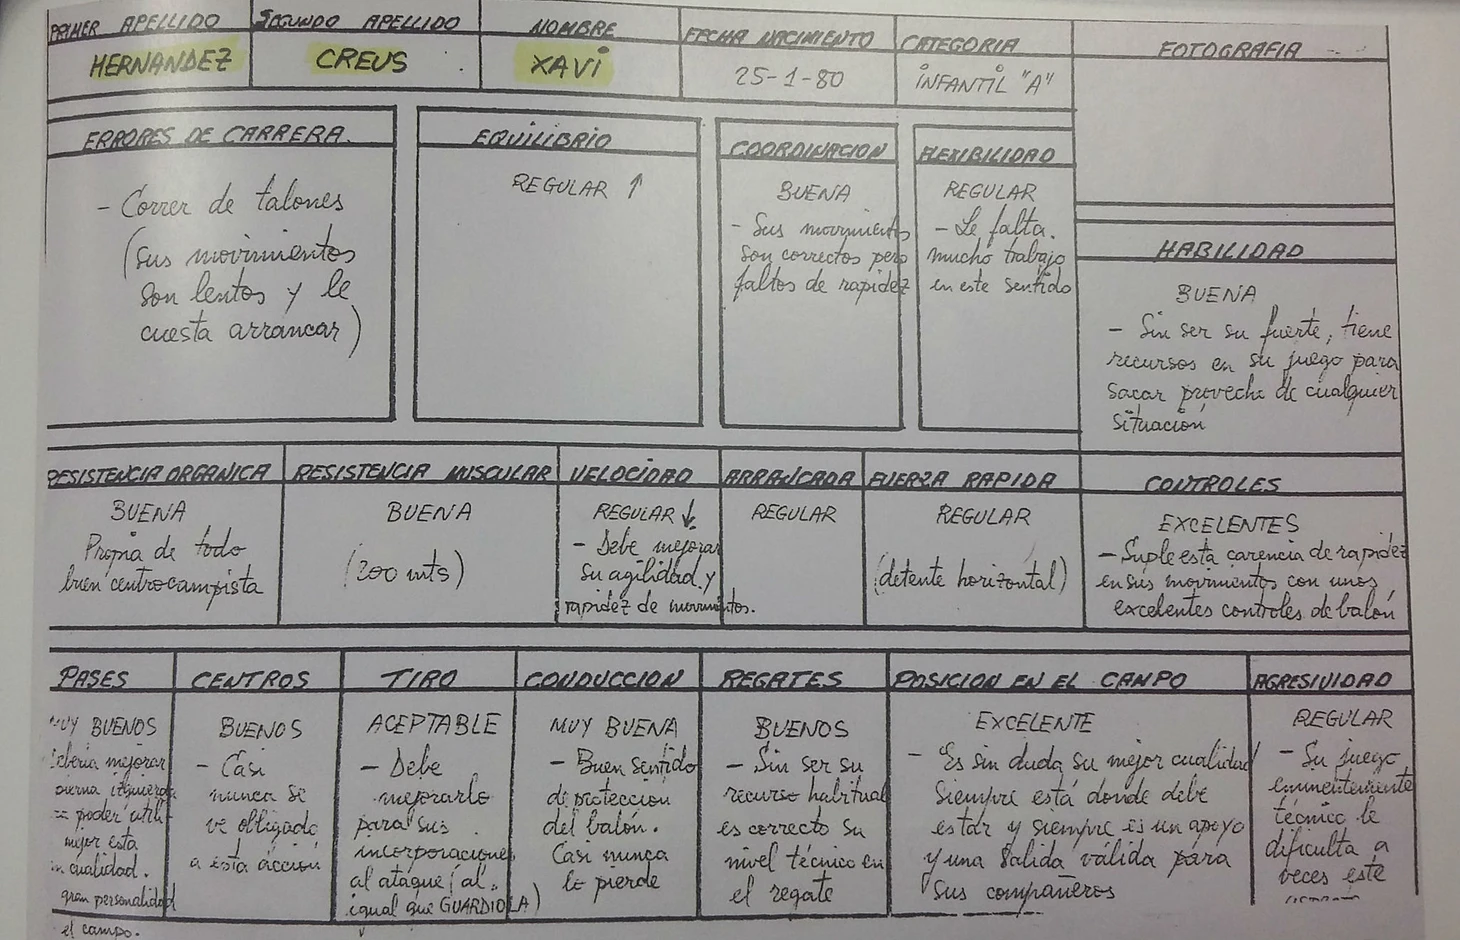 PRIMER APELLIDO
HERNANDEZ
SEGUNDO APELLIDO
CREUS
NOMBRE
XAVi
FECHA NACIMIENTO
25-1-80
CATEGORIA
INFANTIL "A"
FOTOGRAFIA
ERRORES DE CARRERA
- Correr de talones
(sus movimientos
son lentos y le
cuesta arrancar)
EQUILIBRIO
REGULAR ↑
COORDINACION
BUENA
- Sus movimientos
son correctos pero
faltos de rapidez
FLEXIBILIDAD
REGULAR
- Le falta
mucho trabajo
en este sentido
HABILIDAD
BUENA
- Sin ser su fuerte, tiene
recursos en su juego para
sacar provecho de cualquier
situación
RESISTENCIA ORGANICA
BUENA
Propia de todo
buen centrocampista
RESISTENCIA MUSCULAR
BUENA
(200 mts)
VELOCIDAD
REGULAR ↓
- Debe mejorar
su agilidad y
rapidez de movimientos.
ARRANCADA
REGULAR
FUERZA RAPIDA
REGULAR
(detente horizontal)
CONTROLES
EXCELENTES
- Suple esta carencia de rapidez
en sus movimientos con unos
excelentes controles de balón
PASES
MUY BUENOS
mejorar
pierna izquierda
poder utili-
mejor esta
cualidad.
gran personalidad
el campo.
CENTROS
BUENOS
- Casi
nunca se
ve obligado
a esta acción
TIRO
ACEPTABLE
- Debe
mejorarlo
para sus
incorporaciones
al ataque (al
igual que GUARDIOLA)
CONDUCCION
MUY BUENA
- Buen sentido
de protección
del balón.
Casi nunca
lo pierde
REGATES
BUENOS
- Sin ser su
recurso habitual
es correcto su
nivel técnico en
el regate
POSICION EN EL CAMPO
EXCELENTE
- Es sin duda su mejor cualidad
Siempre está donde debe
estar y siempre es un apoyo
y una salida válida para
sus compañeros
AGRESIVIDAD
REGULAR
- Su juego
eminentemente
técnico le
dificulta a
veces este